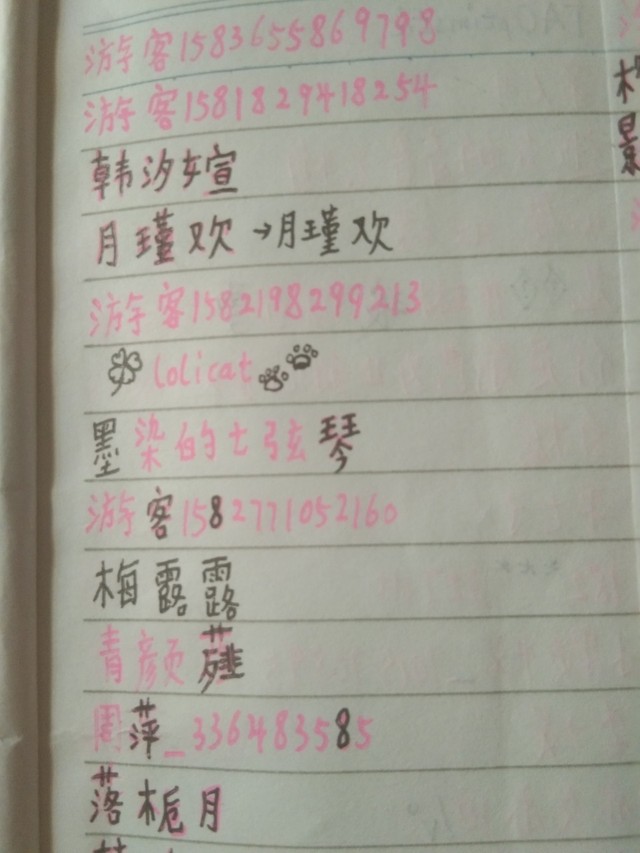 游客1583655869798
游客1581829418254
韩汐媗
月瑾欢→月瑾欢
游客1582198299213
lolicat
墨染的七弦琴
游客1582771052160
梅露露
青颜
周萍_336483585
落栀月